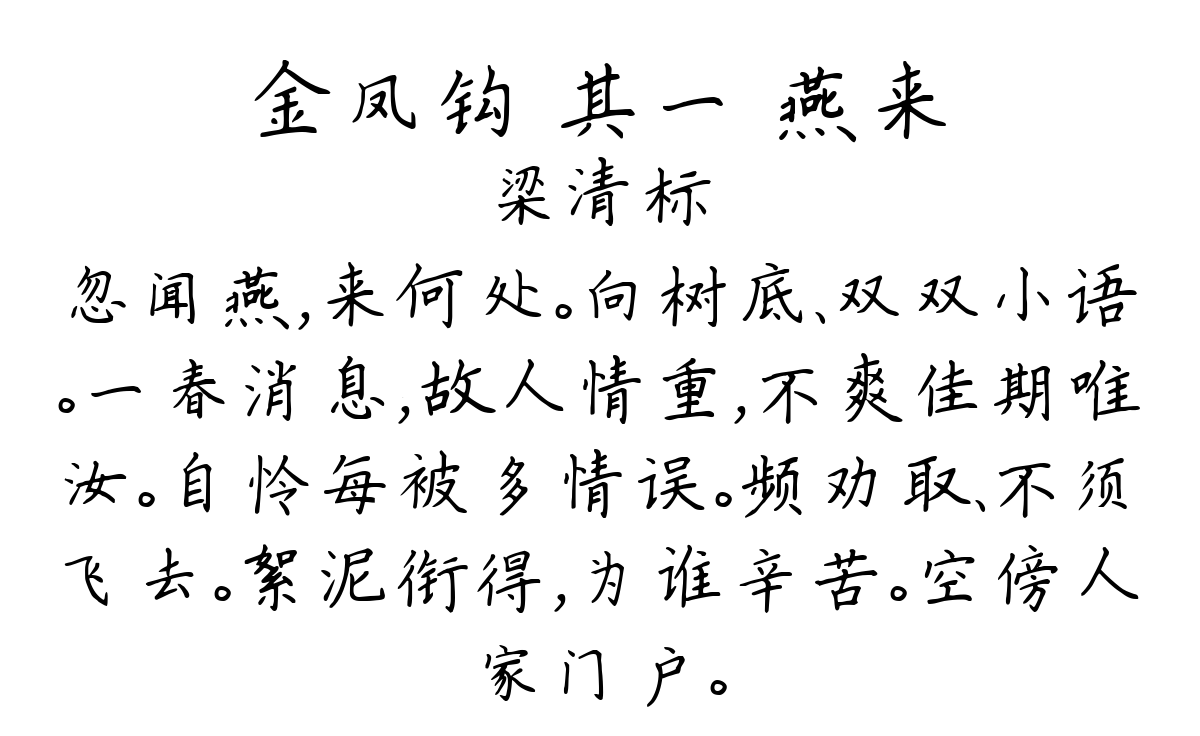 金凤钩 其一 燕来
梁清标
忽闻燕,来何处。向树底、双双小语
。一春消息,故人情重,不爽佳期唯
汝。自怜每被多情误。频劝取、不须
飞去。絮泥衔得,为谁辛苦。空傍人
家门户。